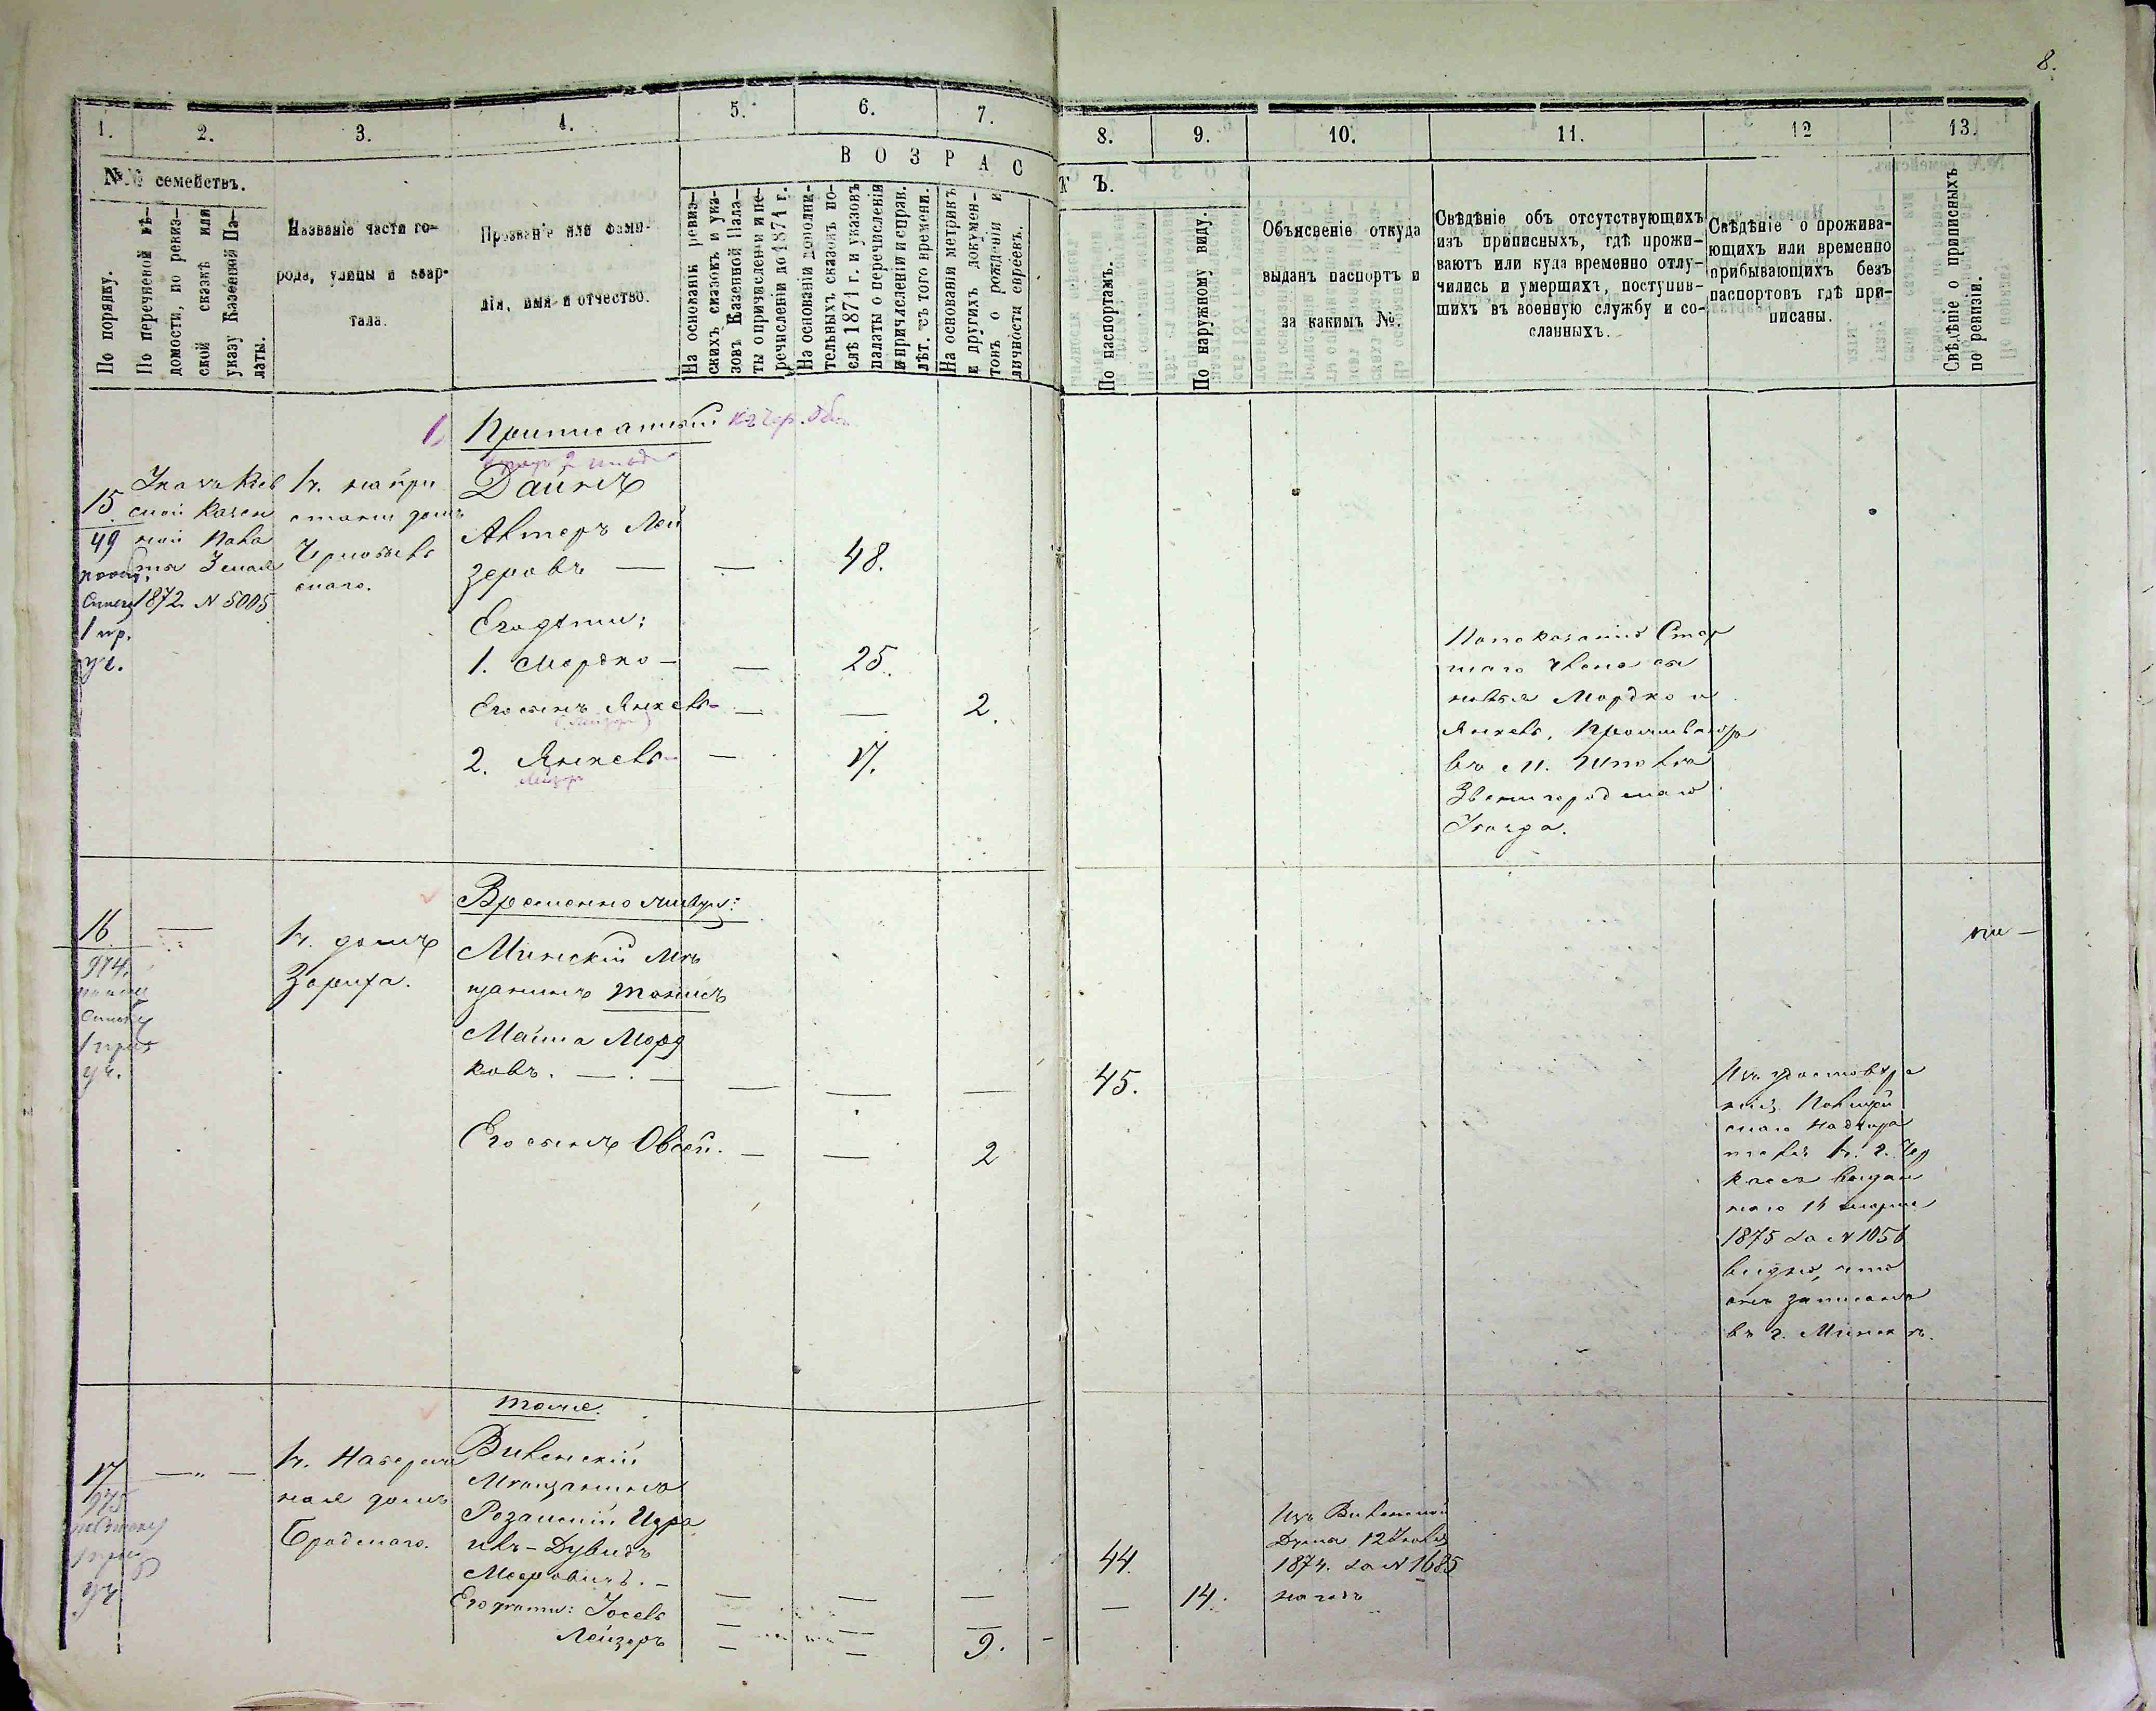 8.
1.
2.
3.
4.
5.
6.
7.
8.
9.
10.
11.
12
13.
В О З Р А С Т Ъ.
№№ семействъ.
По порядку.
По перечневой вѣ-
домости, по ревиз-
ской сказкѣ или
указу Казенной Па-
латы.
Названіе части го-
рода, улицы и квар-
тала.
Прозваніе или фами-
лія, имя и отчество.
На основаніи ревиз-
скихъ сказокъ и ука-
зовъ Казенной Пала-
ты о причисленіи и пе-
речисленіи до 1871 г.
На основаніи дополни-
тельныхъ сказокъ по-
слѣ 1871 г. и указовъ
палаты о перечисленіи
и причисленіи и справ.
лѣт. съ того времени.
На основаніи метрикъ
и другихъ докумен-
товъ о рожденіи и
личности евреевъ.
По паспортамъ.
По наружному виду.
Объясненіе откуда
выданъ паспортъ и
за какимъ №.
Свѣдѣніе объ отсутствующихъ
изъ приписныхъ, гдѣ прожи-
ваютъ или куда временно отлу-
чились и умершихъ, поступив-
шихъ въ военную службу и со-
сланныхъ.
Свѣдѣніе о прожива-
ющихъ или временно
прибывающихъ безъ
паспортовъ гдѣ при-
писаны.
Свѣдѣніе о приписныхъ
по ревизіи.
Приписанный къ Чер. Общ.
15
49
1 пр.
уч.
Указъ Кіев
ской Казен
ной Пала
ты 3 мая
1872 N 5005
К. на при
стани домъ
Чернобыль
скаго.
Дайнъ
Алтеръ Лей
зеровъ — — 48.
Его дѣти:
1. Мордко — — 25.
Его сынъ Янкель — — 2.
2. Янкель — — 17.
Лейзеръ
По показанію Стар
шаго члена сы
новья Мордко и
Янкель, проживаютъ
въ м. Шпола
Звенигородскаго
Уѣзда.
Временно живущ:
16
974
1 приз
уч.
—
К. домъ
Зарифа.
Минскій Мѣ
щанинъ
Морд
ковъ. — — — — — 45.
Его сынъ Овсей. — — 2
Изъ удостовѣре
нія Полицей
скаго надзира
теля К. г. Чер
кассъ выдан
наго 14 марта
1875 за N 1056
видно, что
онъ записанъ
въ г. Минскѣ.
тоже.
17
975
уч
— „ —
К. Набереж
ная домъ
Бродскаго.
Виленскій
Мѣщанинъ
Розанскій Изра
иль-Дувидъ
Мееровичъ. — — — — 44.
Его дѣти: Іосель — — — — 14.
Лейзеръ — — 9. -
Изъ Виленской
Думы 12 Іюля
1874. за N 1685
на годъ